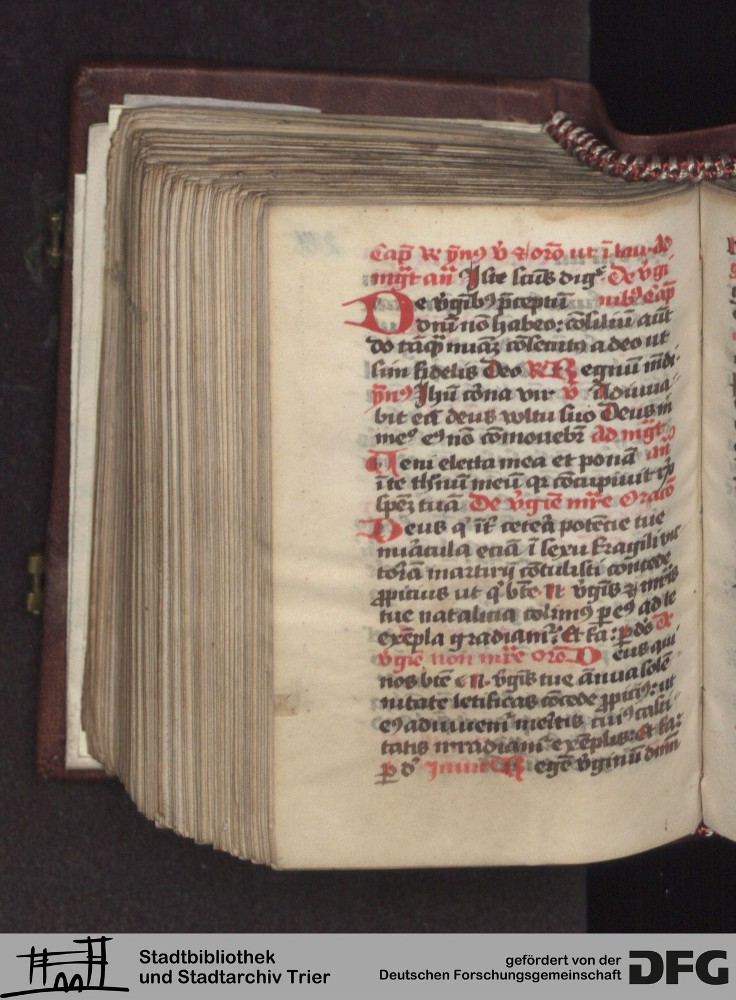 Cap̄ ℟ ẏmꝰ v̇ ⁊ orō ut ī lau. Ad
mg̃t añ Iste scūs dig᷒ De v̇gi
De v̇gībꝰ p̄ceptū nibꝰ Cap̄
dnī nō habeo: cōsiliū aūt
do tāq̃ mīaȝ cōsecutꝰ a deo ut
sim fidelis Deo ℟ Regnum mūdi.
ẏmꝰ Ihū corōa vir v̇ Adiuua
bit eā deus wltu suo Deus in
me᷒ eꝰ nō cōmouebr̄ Ad mg̃t
Veni electa mea et ponā añ
ī te thrnū meū qr̄ cōcupiuit
spēȝ tuā De v̇gīe mr̄e Oracō
Deus q' īt̄ ceterā potēcie tue
miracula eciā ī sexu fragili vic
toriā martirij cōtulisti concede
ꝓpicius ut q' btē .N. v̇gīs ⁊ mr̄is
tue natalicia colimꝰ p eꝰ ad te
exēpla gradiam᷒. Et fa: p do De
v̇gīe non mr̄e Orō Deus qui
nos btē .N. v̇gīs tue ānua solē
nitate letificas cōcede ꝓpiciꝰ: ut
eꝰ adiuuem᷒ meritis cuiꝰ casti
tatis irradiam᷒ exēplis: Et fa:
p do Inuit Regē v̇ginū dnm
Stadtbibliothek
und Stadtarchiv Trier
gefördert von der
Deutschen Forschungsgemeinschaft DFG